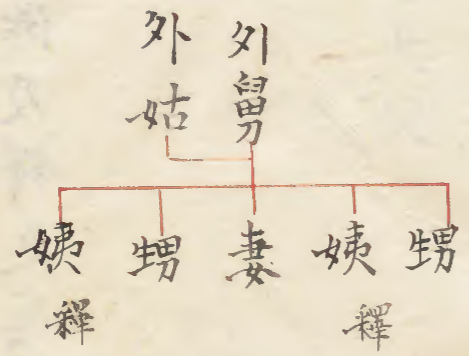 外舅
外姑
甥
姨
妻
甥
姨
釋
釋